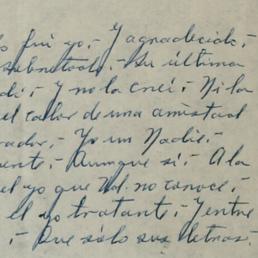 fui yo.- Y agradecido.-
sobretodo.- Su última
di.- Y no la creí.- Ni la
el calor de una amistad
rador.- Yo un Nadie.-
ente.- Aunque si.- A la
el yo que Ud. no conoce.-
El yo tratante.- Y entre
.- Que sólo sus letras.